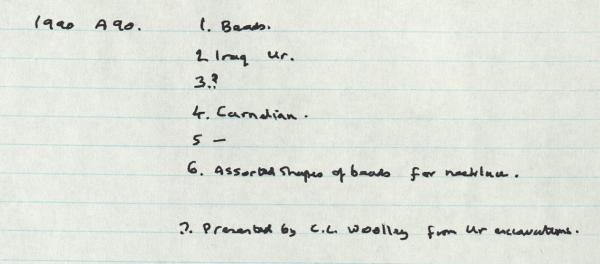 1990 A90. 1. Beads.
2. Iraq Ur.
3.?
4. Carnelian.
5 —
6. Assorted shapes of beads for necklace.
?. Presented by C.L. Woolley from Ur excavations.